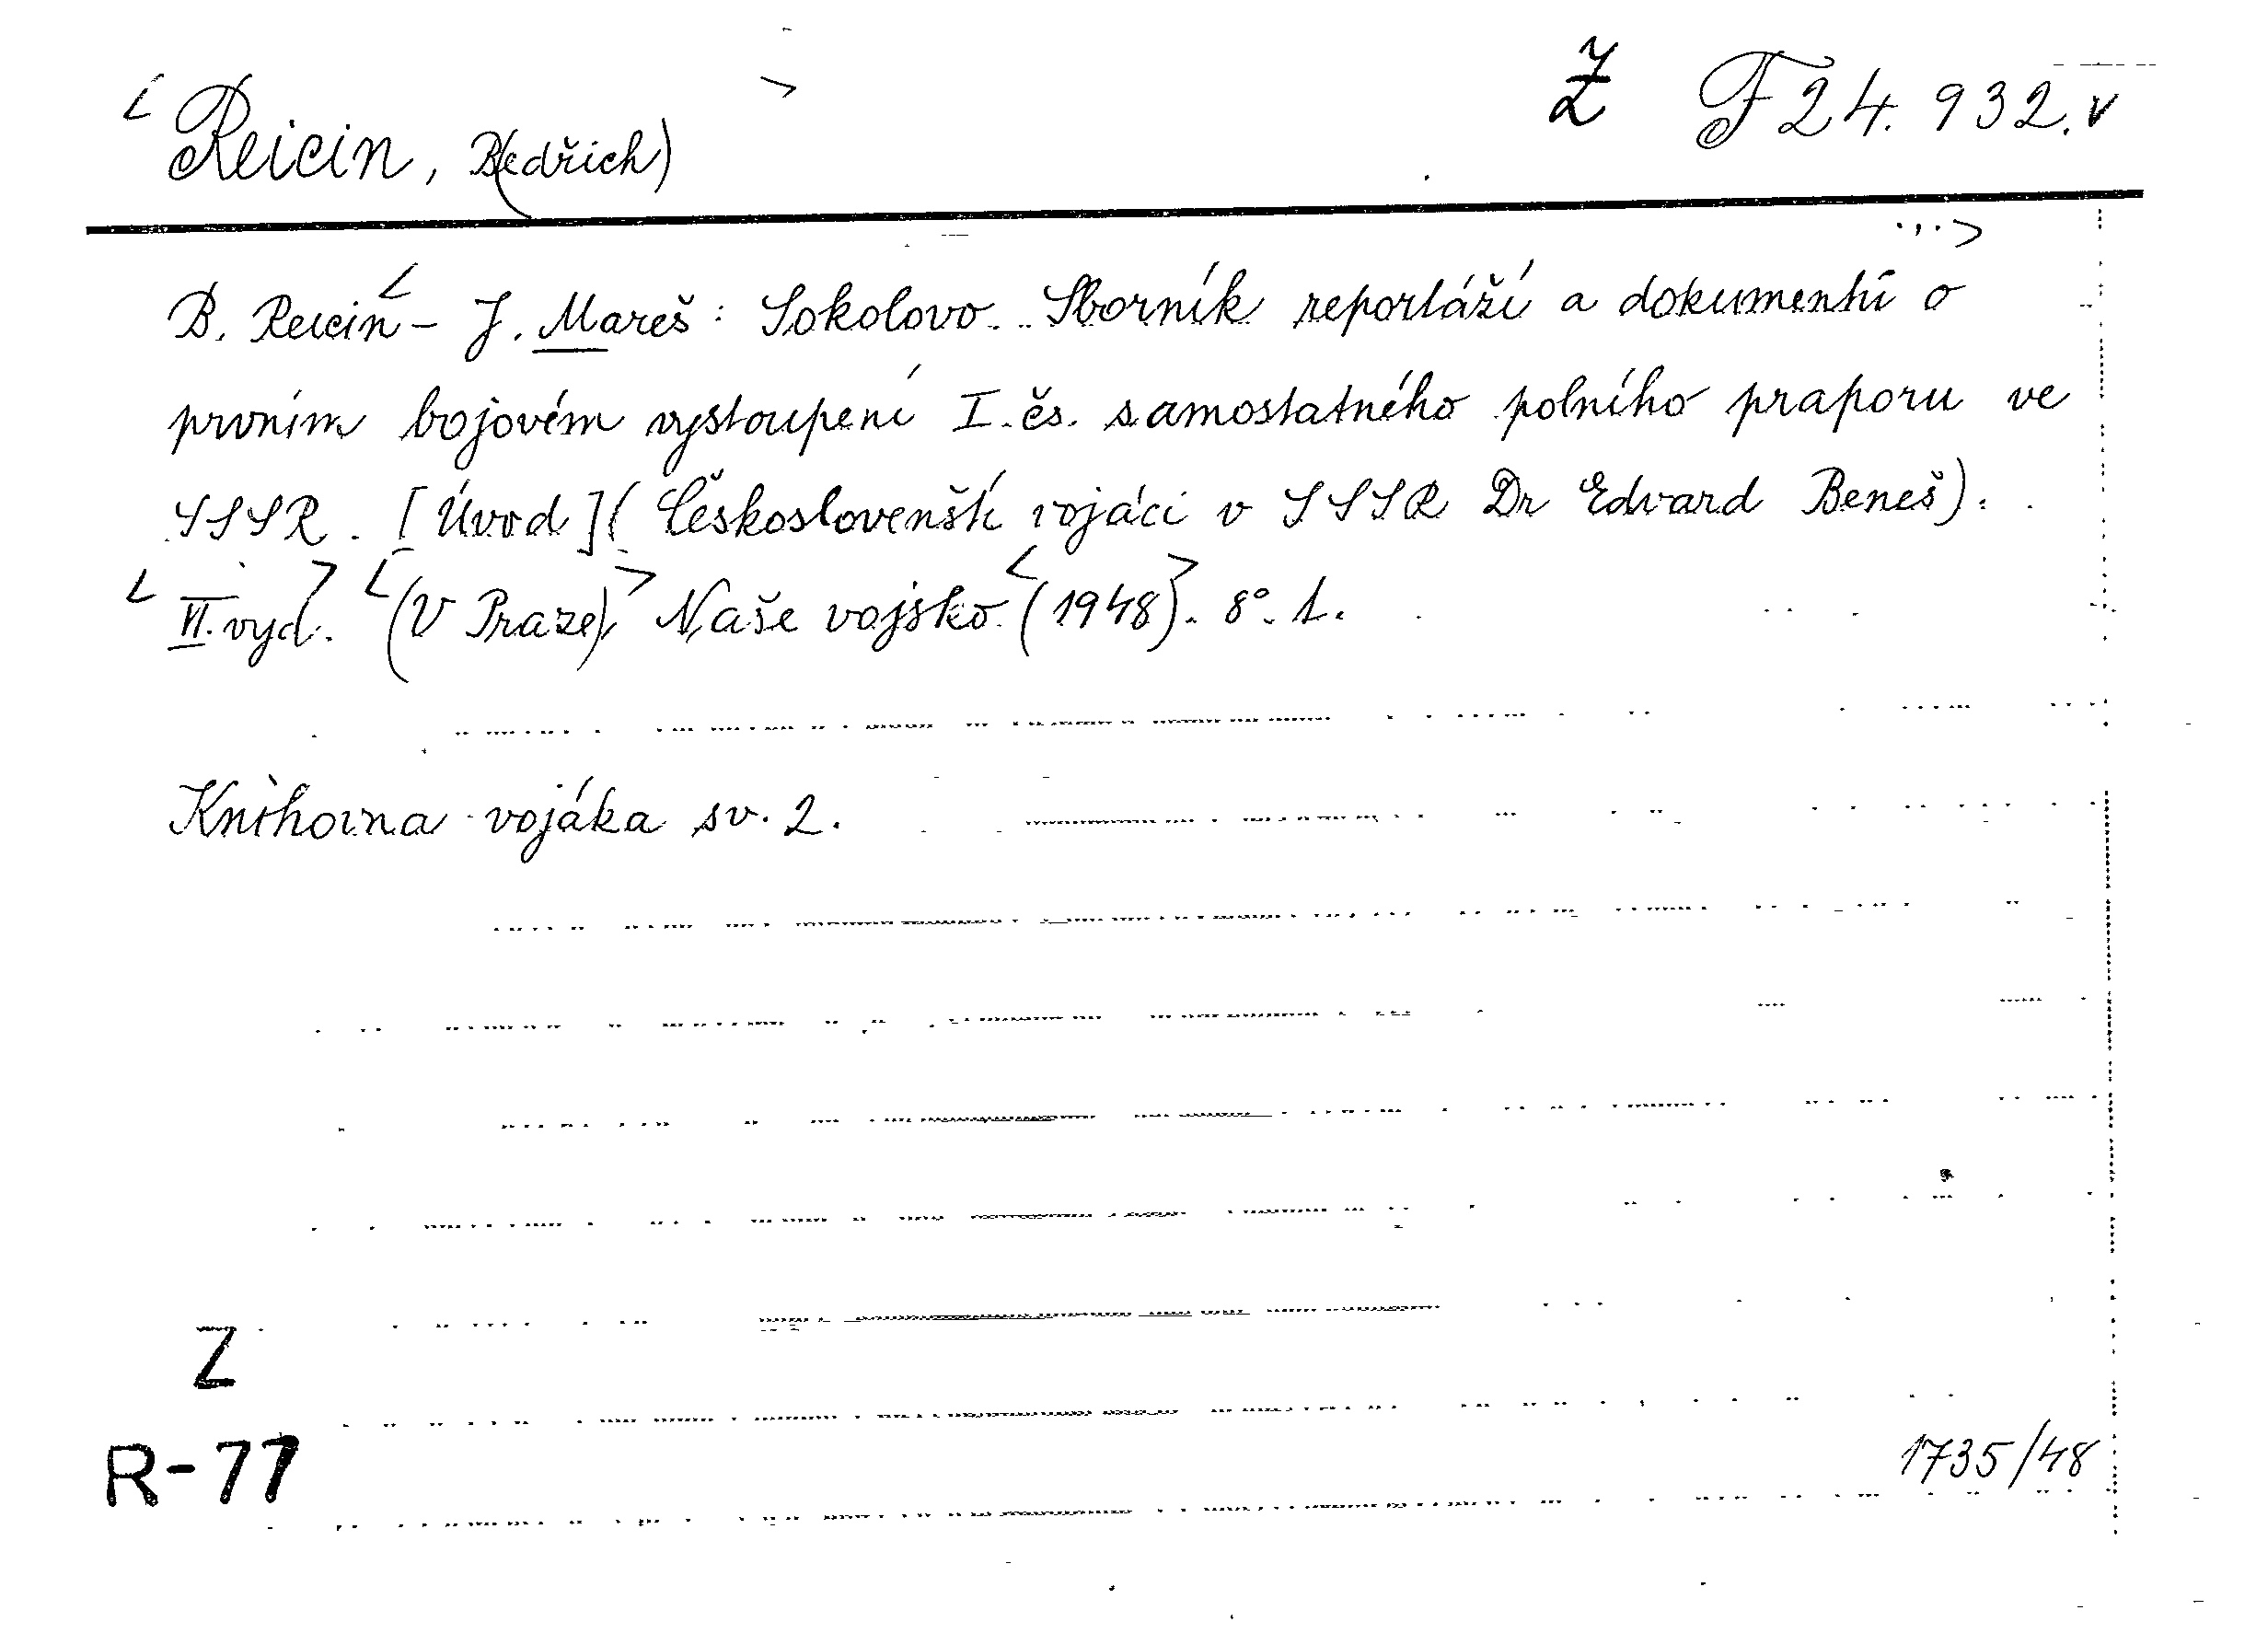 < Reicin, B(edřich) > Ž F 24.932.v
B. Reicin < – J. Mareš: Sokolovo. Sborník reportáží a dokumentů o ...>
prvním bojovém vystoupení I. čs. samostatného polního praporu ve
SSSR. [Úvod] (Českoslovenští vojáci v SSSR Dr Edvard Beneš).
< VI. vyd. > < (V Praze), > Naše vojsko < (1948) >. 8°. 1.
Knihovna vojáka sv. 2.
Z
R-77
1735/48